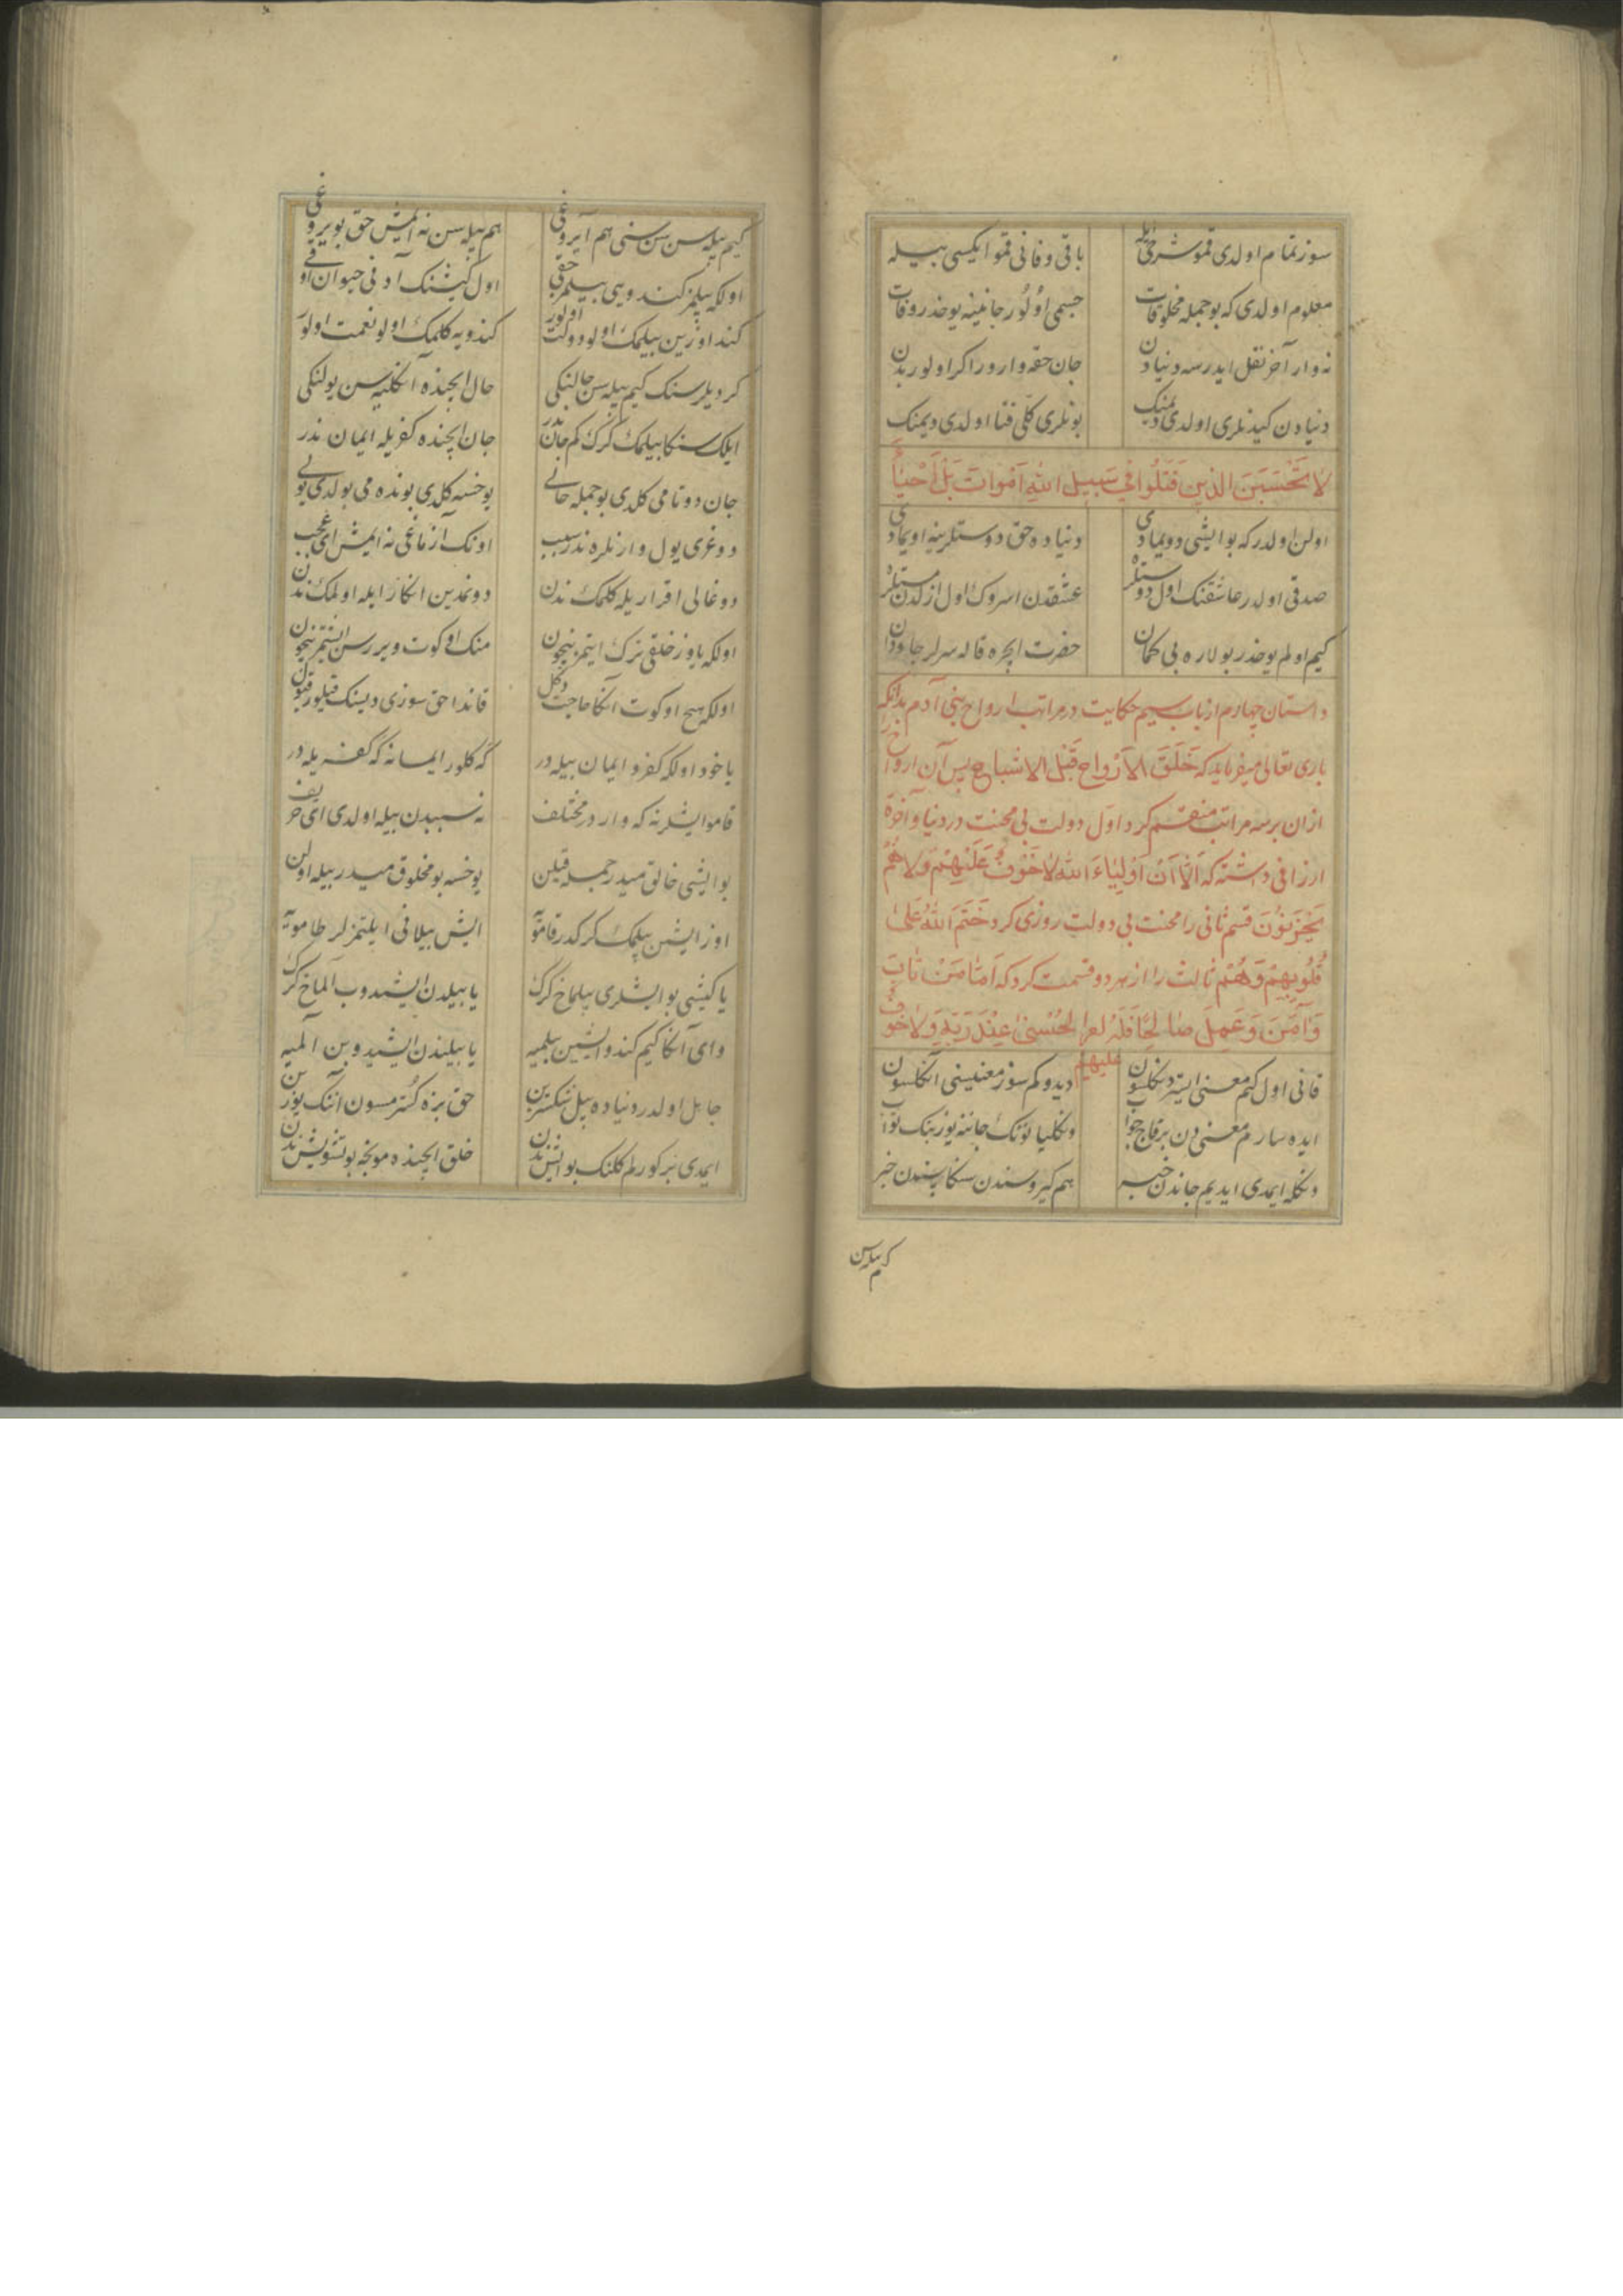 سوز تمام اولدی قمو شرحی ایله باقی و فانی قمو ایکیسی بیله
معلوم اولدی که بو جمله مخلوقات جسمی اولور جانینه یوخدر وفات
نه وار آخر نقل ایدرسه دنیادن جان حقه وارور اگر اولور بدن
دنیادن کیدنلری اولدی دیمنک بونلری کلی فنا اولدی دیمنک
لا تحسبن الذین قتلوا فی سبیل الله اموات بل احیاء
اولن اولدر که بو ایشی دویمادی دنیاده حق دوستلرینه اویمادی
صدقی اولدر عاشقنک اول دوستلر عشقدن اسروک اول ازلدن مستلر
کیم اولم یوخدر بولاره بی کمان حضرت ایچره قاله سرلر جاودان
داستان چهارم از باب سیم حکایت در مراتب ارواح بنی آدم بدانکه
باری تعالی میفرماید که خَلَقَ الاَرْواح قَبْل الاشباح پس آن ارواح را
ازان بر سه مراتب منقسم کرد اول دولت بی محنت در دنیا و آخرة
ارزانی داشته که اَلا اَنَ اَوْلِیاءَ الله لا خَوْفٌ عَلَیْهِمْ وَلا هُمْ
یَحْزَنُونَ قسم ثانی را محنت بی دولت روزی کرد خَتَمَ اللهُ عَلی
قُلُوبِهِمْ وَهُمْ ثالث را از هر دو قسمت کرد که اَمّا مَنْ تابَ
وَآمَنَ وَعَمِلَ صالِحًا فَلَهُ الحُسْنی عِنْدَ رَبِّهِ وَلا خَوْفٌ
علیهم
قانی اول کیم معنی ایستر دنکلسون دیدوکم سوز معنیسینی آنکلسون
ایده سارم معنی دن بر قاچ جواب دنکلیانونک جاننه یوز بنک ثواب
دنکله ایمدی ایدیم جاندن خبر هم کیرو سندن سنکا سندن خبر
کیم بیله سن
کیم بیله سن سن سنی هم آیروغی هم بیله سن نه ایمش حق بویروغی
اولکه بیلمز کندویی بیلمز حقی اول کیشنک آدی حیوان
کند اوزین بیلمک اولو دولت اولور کندویه کلمک اولو نعمت اولور
کر دیلرسنک کیم بیله سن حالنکی حال ایچنده آنکلیه سن یولنکی
ایلک سنکا بیلمک کرک کم جان ندر جان ایچنده کفریله ایمان ندر
جان دوتامی کلدی بو جمله جانی یوخسه کلدی بونده می بولدی بونی
دوغری یول وارنلره ندر سبب اونک آزماغی نه ایمش ای عجب
دوغالی اقراریله کلمک ندن دونمدین انکار ایله اولمک ندن
اولکه یاوز خلقی ترک ایتمز نیچون منک اوکوت ویررسن ایشتمز نیچون
اولکه هیچ اوکوت آنکا حاجت دکل قاندا حق سوزی دیسنک قیلور قبول
یا خود اولکه کفر و ایمان بیله در که کلور ایمانه که کفریله در
قامو ایشلر نه که واردر مختلف نه سببدن بیله اولدی ای حریف
بو ایشی خالق میدر جمله قیلن یوخسه بو مخلوق میدر بیله اولن
اوز ایشین بیلمک کرکدر قامویه ایش بیلانی ایلتمزلر طامویه
یا کیشی بو ایشلری بیلماخ کرک یا بیلدن ایشیدوب الماخ کرک
وای آنکا کیم کندو ایشین بیلمیه یا بیلندن ایشیدوبن آلمیه
جاهل اولدر دنیاده بیل حق بزه کسترمسون آننک یوزین
ایمدی بر کورطر کلنک بو ایش ندن خلق ایچنده مونجه بو تشویش ندن